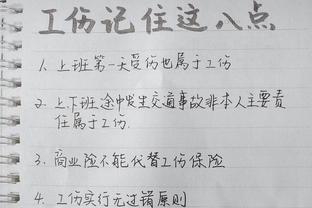 工伤记住这八点
1、上班第一天受伤也属于工伤
2、上、下班途中发生交通事故非本人主要责
任属于工伤.
3、商业险不能代替工伤保险
4、工伤实行无过错原则